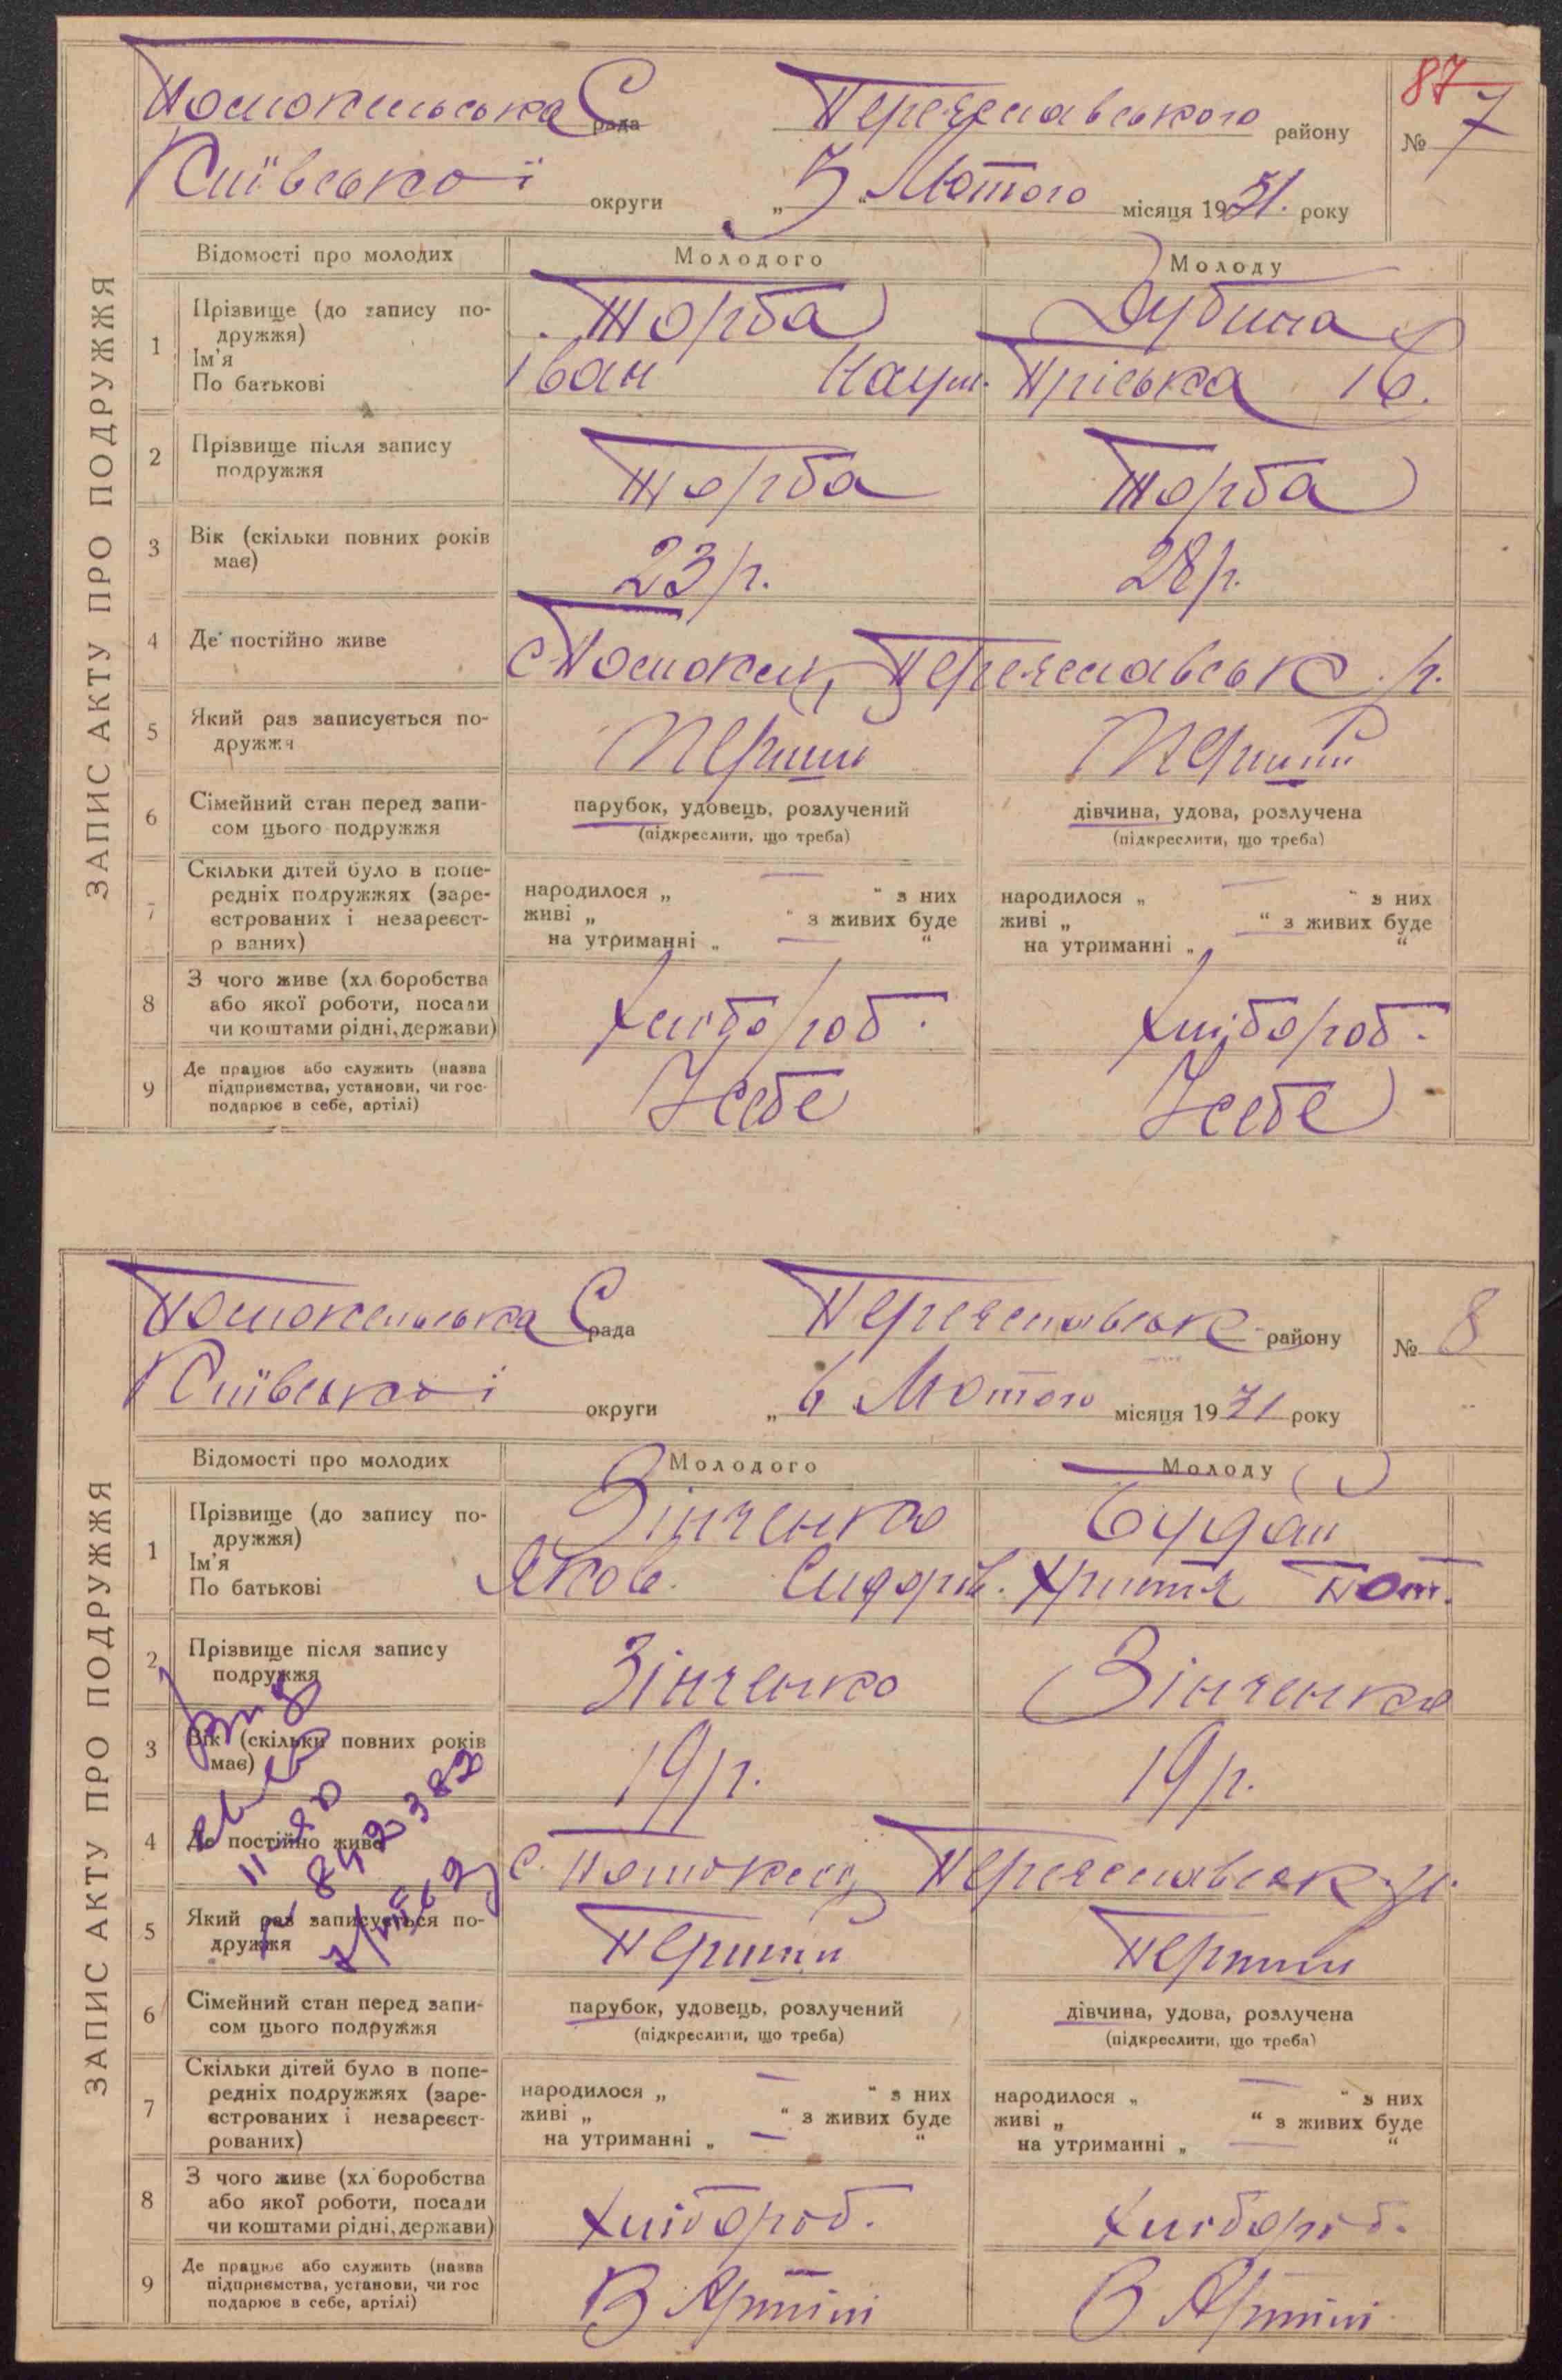 ЗАПИС АКТУ ПРО ПОДРУЖЖЯ
87
Рада Переяславського району № 7
Київської округи „3“ Лютого місяця 1931. року
Відомості про молодих Молодого Молоду
1 Прізвище (до запису по-
дружжя)
Ім'я
По батькові
Торба Дубина
Іван Наум. Пріська Ів.
2 Прізвище після запису
подружжя
Торба Торба
3 Вік (скільки повних років
має)
23 р. 28 р.
4 Де постійно живе
с Переяславськ. р.
5 Який раз записується по-
дружжя
Перший Перший
6 Сімейний стан перед запи-
сом цього подружжя
парубок, удовець, розлучений дівчина, удова, розлучена
(підкреслити, що треба) (підкреслити, що треба)
7 Скільки дітей було в попе-
редніх подружжях (заре-
єстрованих і незареєст-
р ваних)
народилося „ — “ з них народилося „ — “ з них
живі „ “ з живих буде живі „ “ з живих буде
на утриманні „ — “ на утриманні „ — “
8 З чого живе (хл боробства
або якої роботи, посади
чи коштами рідні, держави)
Хлібороб. Хлібороб.
9 Де працює або служить (назва
підприємства, установи, чи гос-
подарює в себе, артілі)
У себе У себе
ЗАПИС АКТУ ПРО ПОДРУЖЖЯ
рада Переяславськ району № 8
Київської округи „6 Лютого місяця 1931 року
Відомості про молодих Молодого Молоду
1 Прізвище (до запису по-
дружжя)
Ім'я
По батькові
Зінченко Будан
Яков. Сидорів. Христя Пот.
2 Прізвище після запису
подружжя
Зінченко Зінченко
3 Вік (скільки повних років
має)
19 р. 19 р.
4 Де постійно живе
с. Переяславськ. р.
5 Який раз записується по-
дружжя
Перший Перший
6 Сімейний стан перед запи-
сом цього подружжя
парубок, удовець, розлучений дівчина, удова, розлучена
(підкреслити, що треба) (підкреслити, що треба)
7 Скільки дітей було в попе-
редніх подружжях (заре-
єстрованих і незареєст-
рованих)
народилося „ — “ з них народилося „ — “ з них
живі „ “ з живих буде живі „ “ з живих буде
на утриманні „ — “ на утриманні „ — “
8 З чого живе (хл боробства
або якої роботи, посади
чи коштами рідні, держави)
Хлібороб. Хлібороб.
9 Де працює або служить (назва
підприємства, установи, чи гос
подарює в себе, артілі)
В Артілі В Артілі